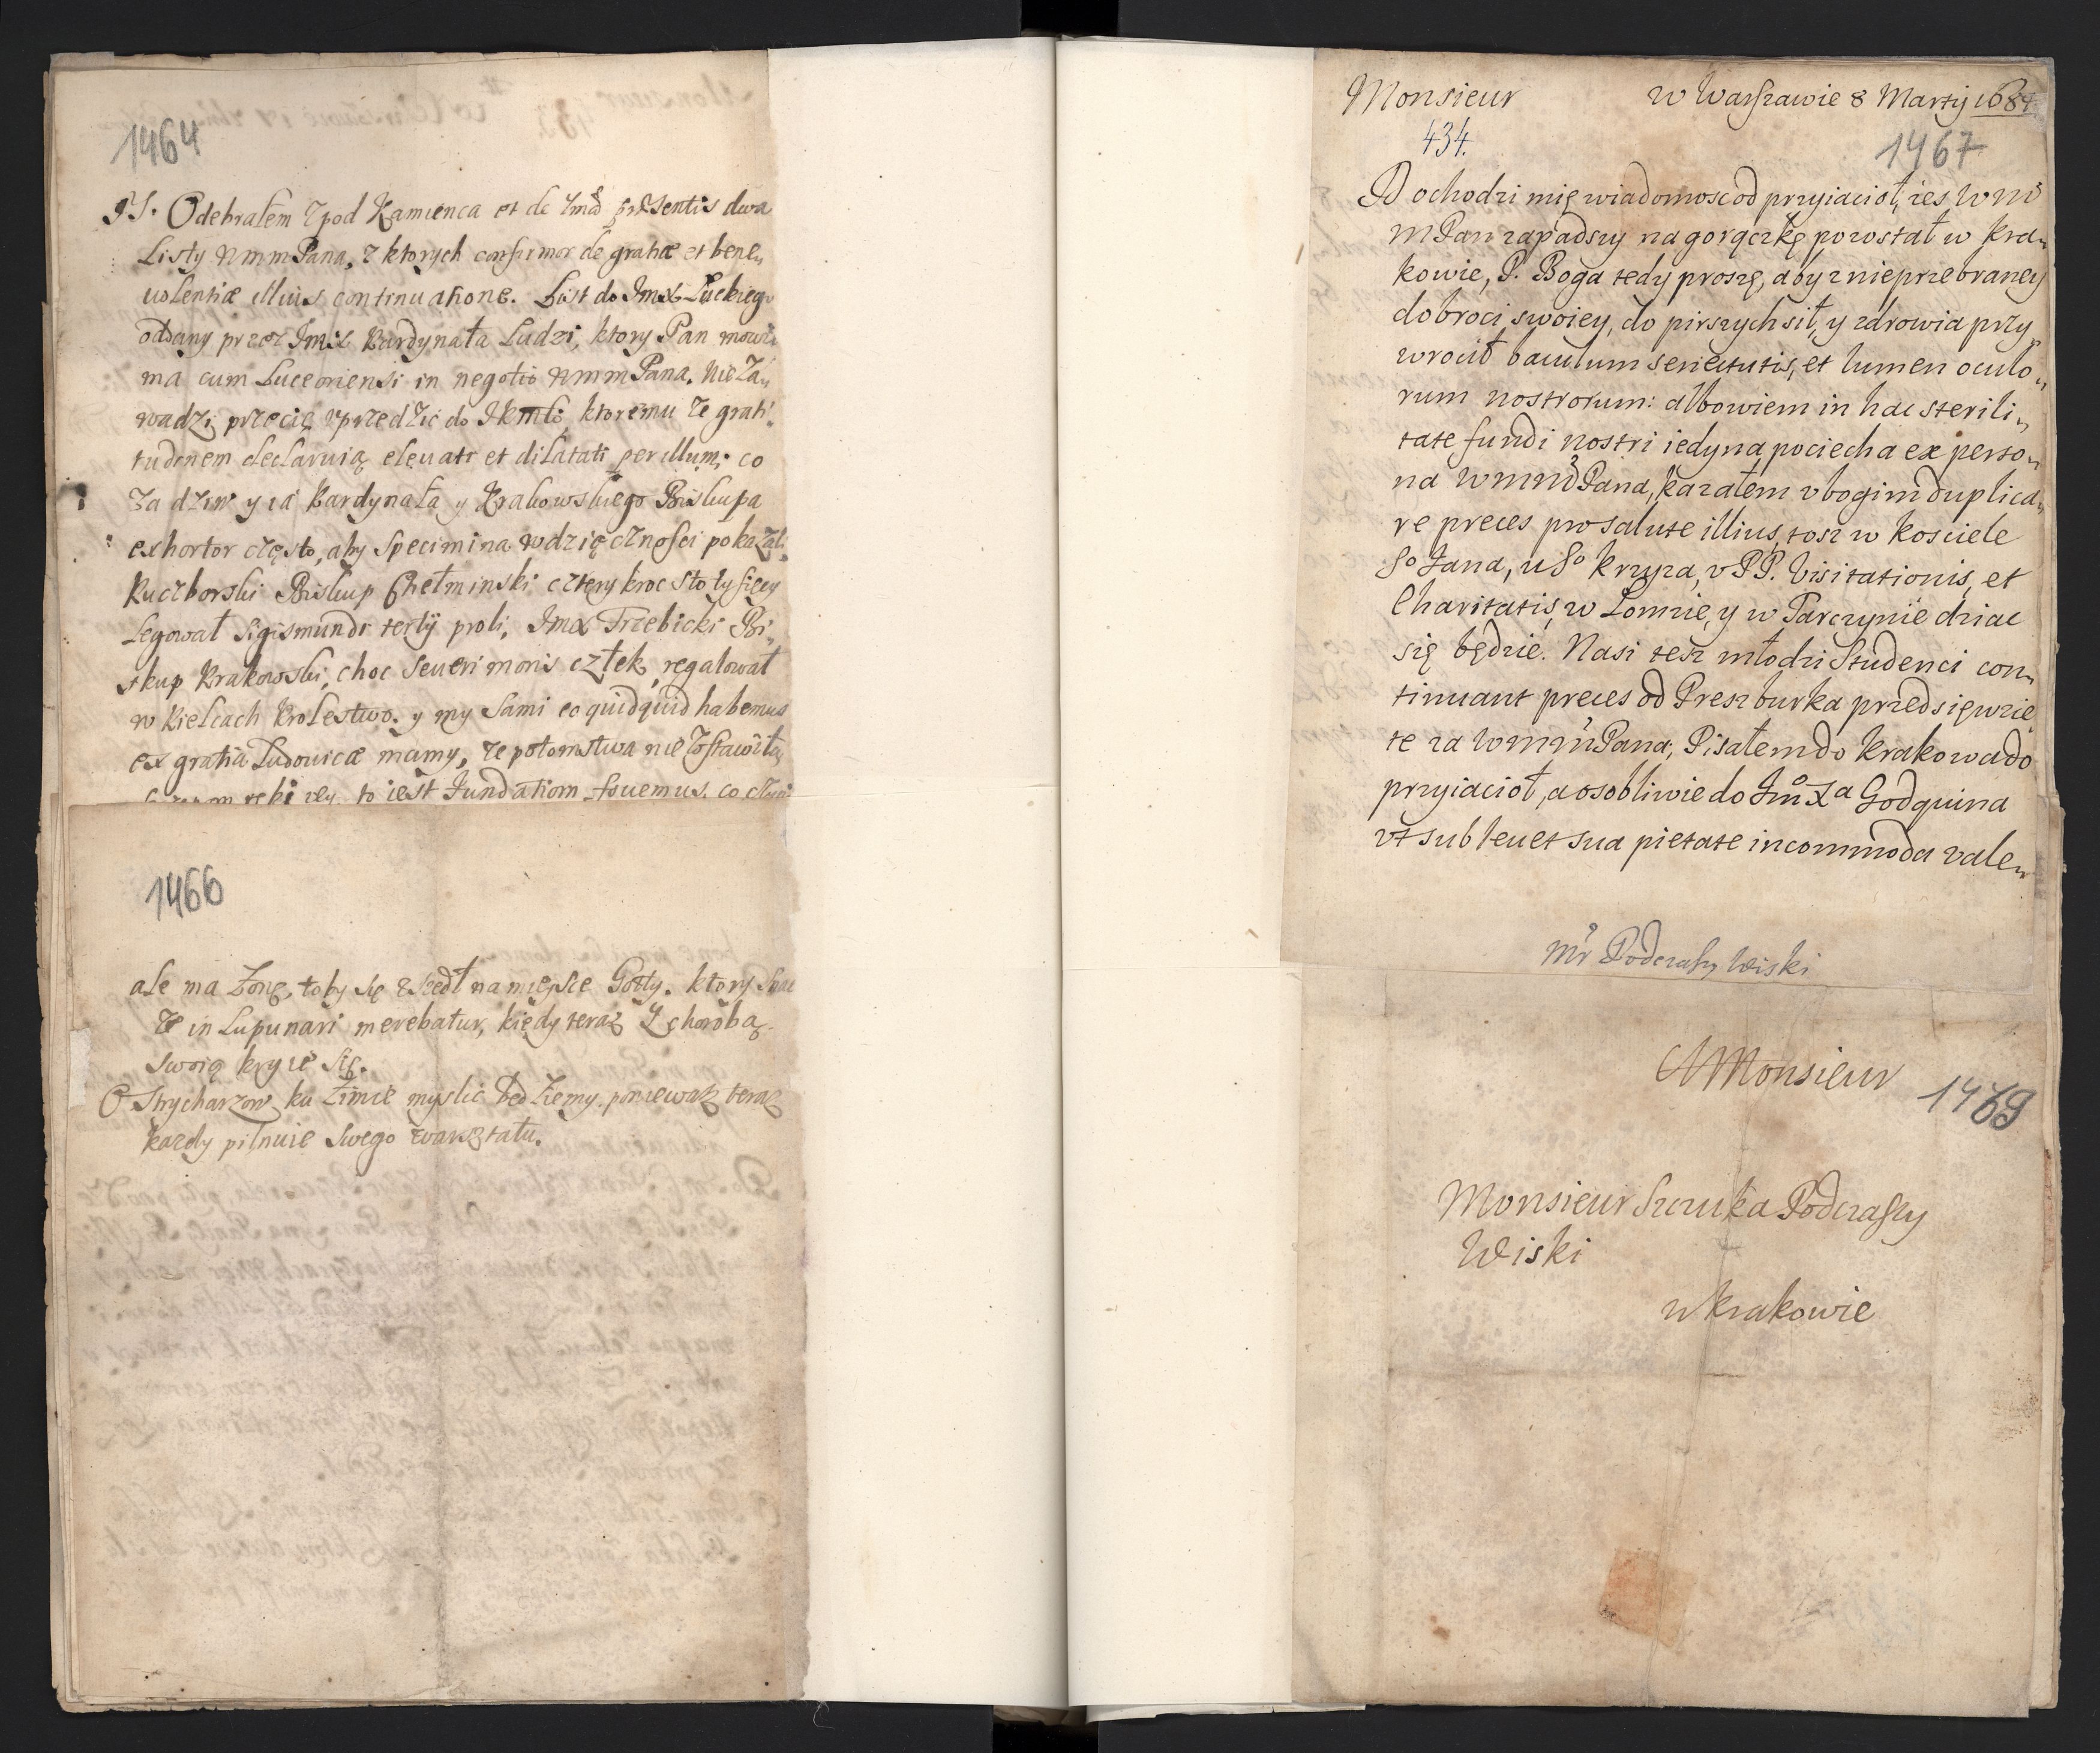 1464
Odebrałem zpod Kamienca et de 2ma præsentis dwa
Listy WmmPana, z ktorych confirmor de gratiæ et bene„
uolentiæ illius continuatione. List do Imx Łuckiego
oddany przez Imx Kardynała Ludzi, ktory Pan mowić
ma cum Luceoriensi in negotio WmmPana. Nie Za„
wadzi przecię uprzedzić do JKmsci, ktoremu ze grati„
tudinem declaruią eleuati et dilatati per illum; co
za dziw y ia Kardynała y Krakowskiego Biskupa
exhortor często, aby Specimina wdzięcznosci pokazali.
Kuczborski Biskup Chełminski cztery kroc sto tysięcy
Legował Sigismundi tertij proli, Imx Trzebicki Bi„
skup Krakowski, choc Seueri moris człek, regalował
w Kielcach Krolestwo. y my Sami co quidquid habemus
ex gratia Ludouicæ mamy, ze potomstwa nie Zostawiła,
to iest Fundatiom
1466
ale ma Zonę, toby się zszedł na mieysce Gotty. ktory
ze in Lupunari merebatur, kiedy teraz Z chorobą
swoią kryie się.
O Strycharzow ku Zimie myslic będziemy. poniewaz teraz
kazdy pilnuie swego warsztatu.
Monsieur w Warszawie 8 Martij 1684.
434.
1467
Dochodzi mię wiadomosc od przyiacioł, zes WM
MPan zapadszy na gorączkę pozostał w Kra„
kowie, P. Boga tedy proszę, aby z nieprzebraney
dobroci swoiey, do pirszych sił, y zdrowia przy„
wrocił baculum senectutis, et lumen oculo„
rum nostrorum: albowiem in hac sterili„
tate fundi nostri iedyna pociecha ex perso„
na WMMPana, kazałem vbogim duplica„
re preces pro salute illius, tosz w kosciele
So Jana, u So Krzyza, v PP. Visitationis, et
Charitatis, w Łomzie, y w Parczynie dziac
się będzie. Nasi tesz młodzi Studenci con„
tinuant preces od Preszburka przedsięwzię
te za WMMPana; Pisałem do Krakowa do
przyiacioł, a osobliwie do Jm Xa Godquina
vt subleuet sua pietate incommoda vale„
Mr Podczaszy Wiski
A Monsieur
1469
Monsieur Szczuka Podczaszy
Wiski
w Krakowie